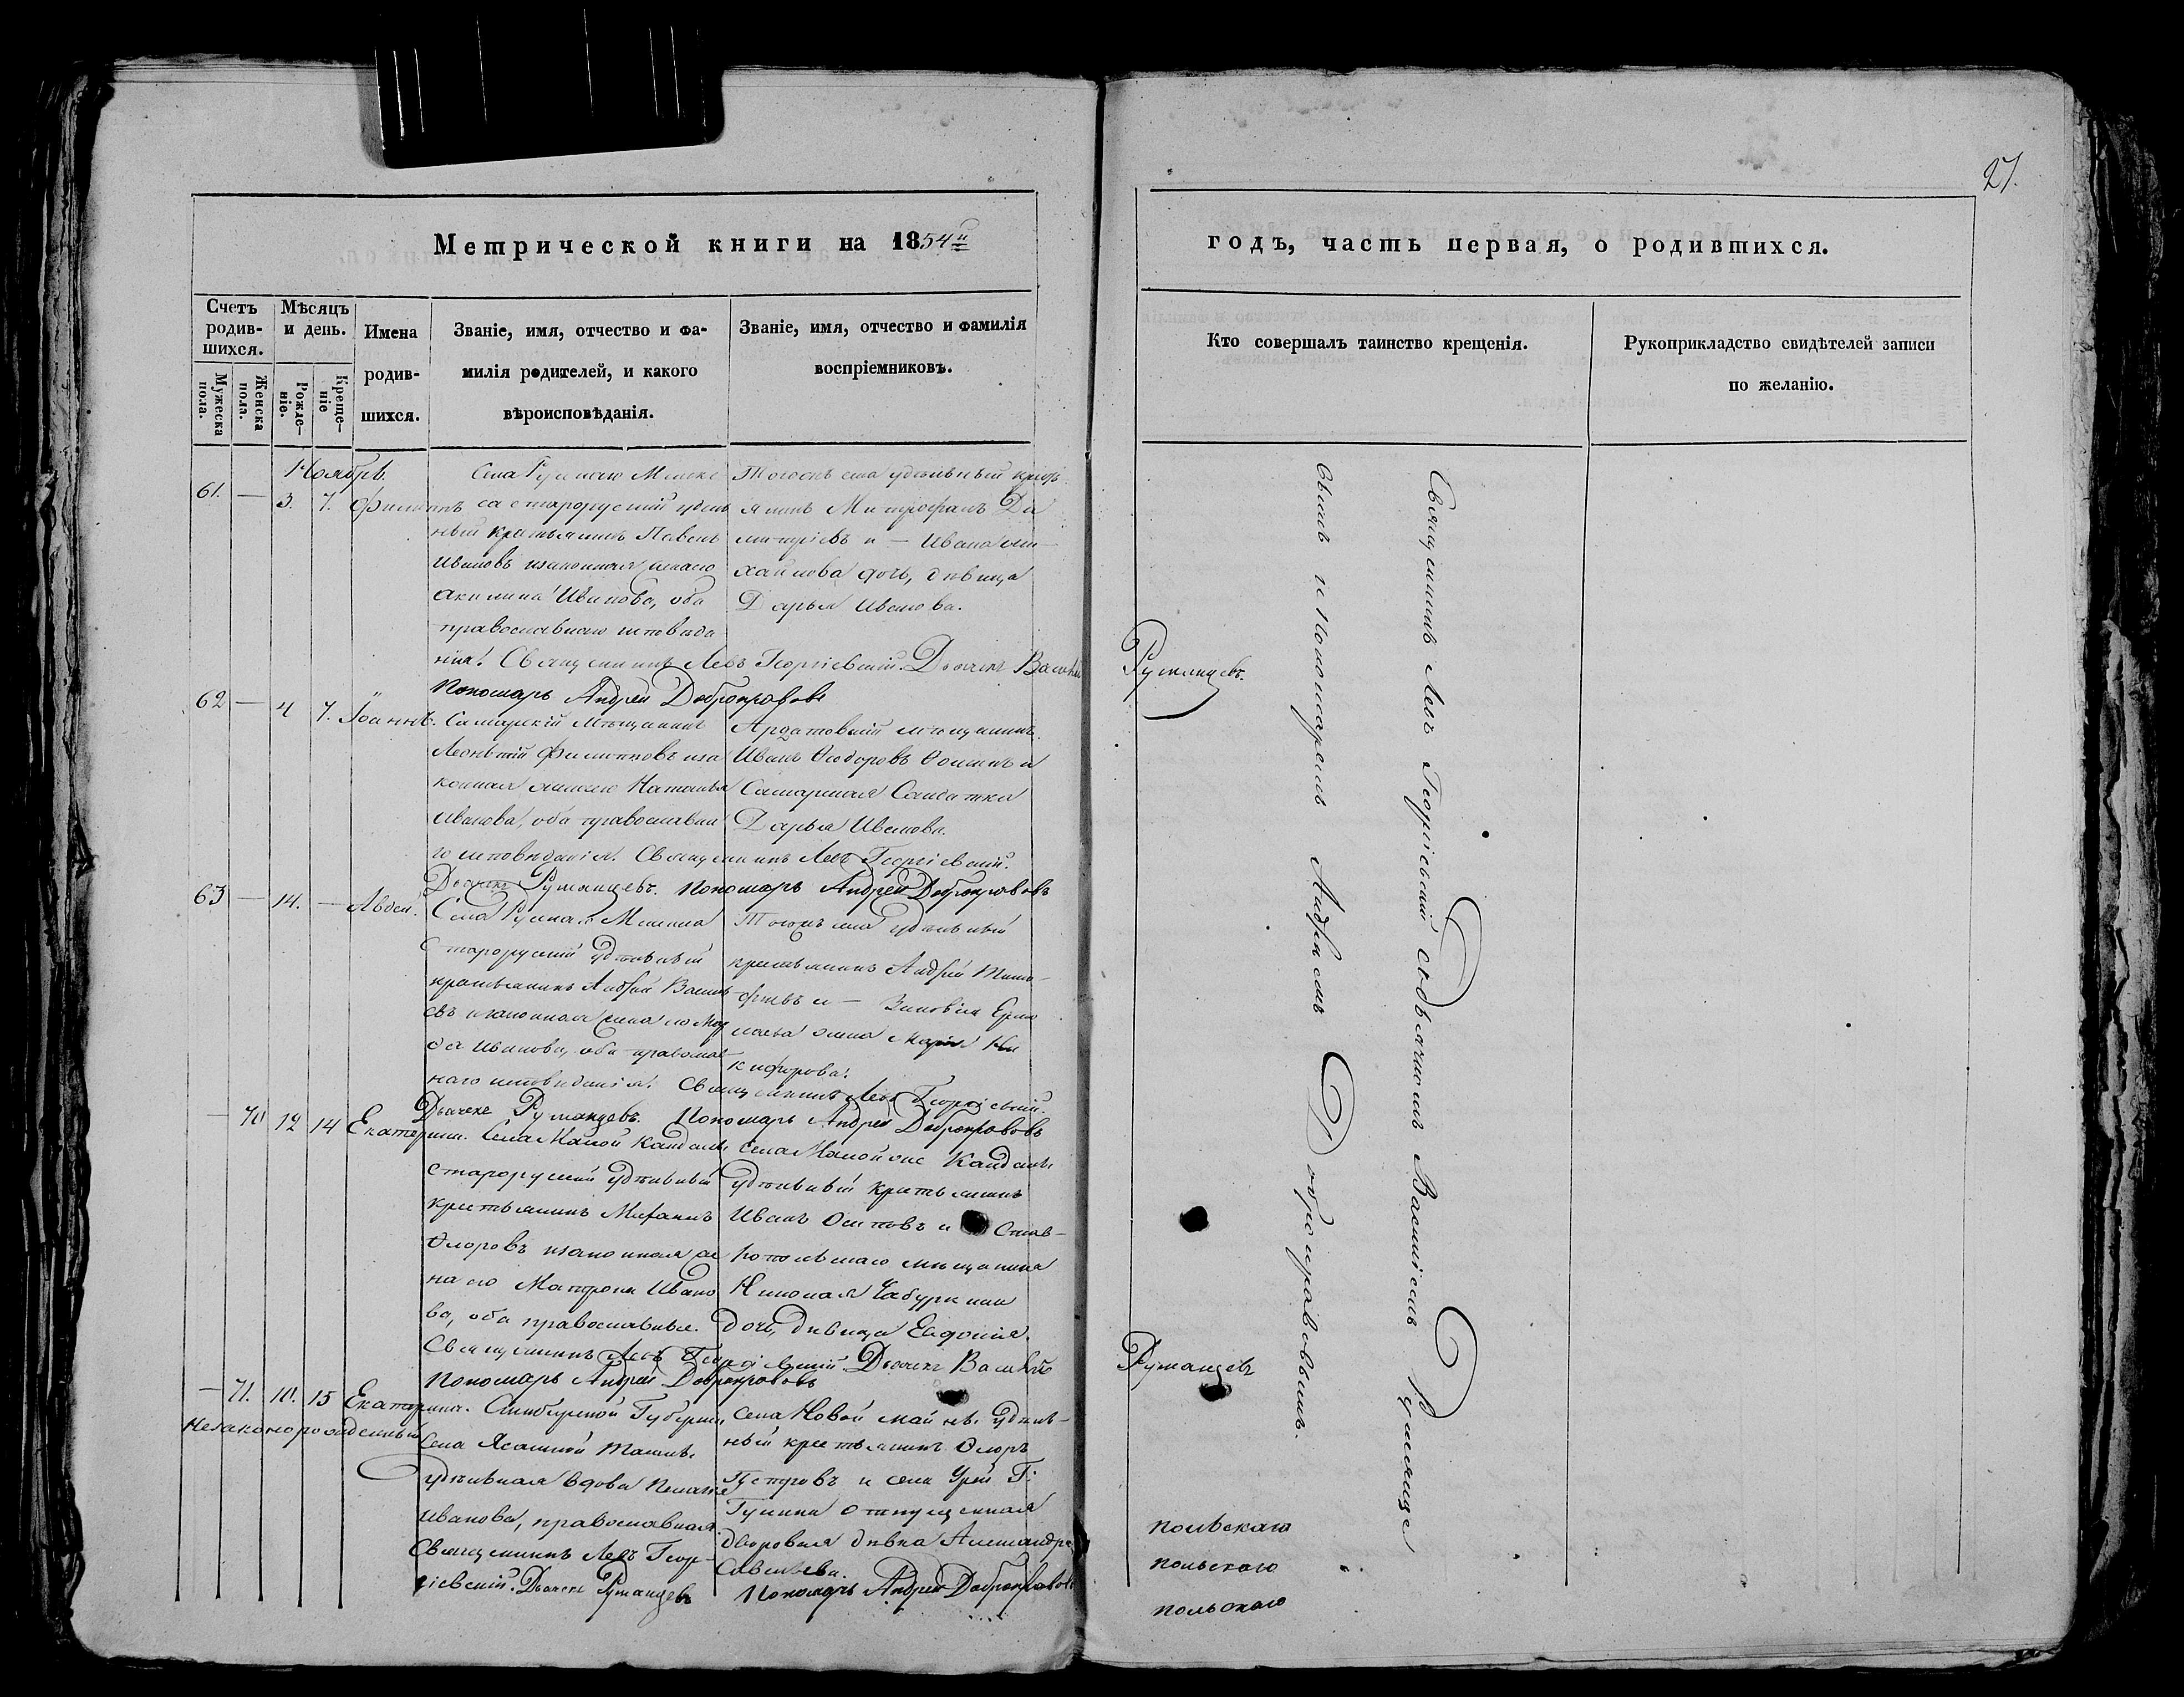 27.
Метрической книги на 1854й
годъ, часть первая, о родившихся.
Счетъ родив-шихся.
Мужеска пола.
Женска пола.
Мѣсяцъ и день.
Рожде-ніе.
Креще-ніе
Имена родив-шихся.
Званіе, имя, отчество и фа-
милія родителей, и какого
вѣроисповѣданія.
Званіе, имя, отчество и фамилія
воспріемниковъ.
Кто совершалъ таинство крещенія.
Рукоприкладство свидѣтелей записи
по желанію.
Ноябрь.
61. — 3. 7. Филиппъ
Села Русскаго Мелеке
са старорусскій удѣль
ный крестьянинъ Павелъ
Ивановъ и законная жена его
Акилина Иванова, оба
православнаго исповѣда
нія. Священникъ Левъ Георгіевскій. Дьячекъ Василій
Румянцевъ.
Пономарь Андрей Добронравовъ
Тогожъ села удѣльный крест
янинъ Митрофанъ Ди
митріевъ и — Ивана Ми
хайлова дочь, дѣвица
Дарья Иванова.
62 — 4 7. Іоаннъ.
Самарскій мѣщанинъ
Леонтій Филиповъ и за
конная жена его Наталья
Иванова, оба православна
го исповѣданія. Священникъ Левъ Георгіевскій.
Дьячекъ Румянцевъ. Пономарь Андрей Добронравовъ
Ардатовскій мѣщанинъ
Иванъ Ѳеодоровъ Ѳоминъ и
Самарская Солдатка
Дарья Иванова.
63 — 14. — Авдей.
Села Русскаго Мелекеса
Старорусскій удѣльный
крестьянинъ Андрей Василь
евъ и законная жена его
Иванова, оба православ
наго исповѣданія. Священникъ Левъ Георгіевскій.
Дьячекъ Румянцевъ. Пономарь Андрей Добронравовъ
Тогожъ села удѣльный
крестьянинъ Андрей Тимо
феевъ и — Зиновія Ермо
лаева жена Марія Ни
кифорова.
— 70 12 14 Екатерина.
Села Малой Кандалы
старорусскій удѣльный
крестьянинъ Михаилъ
Ѳлоровъ и законная же
на его Матрона Ивано
ва, оба православные.
Священникъ Левъ Георгіевскій. Дьячекъ Василій
Румянцевъ
Пономарь Андрей Добронравовъ
Села Малой же Кандалы
удѣльный крестьянинъ
Иванъ Осиповъ и Став-
ропольскаго мѣщанина
Николая Чабуркина
дочь, дѣвица Евдокія.
— 71. 10. 15 Екатерина.
Незаконорожденный
Симбирской Губерніи
Села Ясашной Ташлы
удѣльная вдова Пелагея
Иванова, православная.
Священникъ Левъ Геор-
гіевскій. Дьячекъ Румянцевъ
Села Новой майны удѣль-
ный крестьянинъ Ѳлоръ
Петровъ и села
отпущенная
дворовая дѣвка Александра
Савельева.
Пономарь Андрей Добронравовъ
Священникъ Левъ Георгіевскій съ Дьячкомъ Василіемъ Румянце
вымъ и Пономаремъ Андреемъ Добронравовымъ.
польскаго
польскаго
польскаго